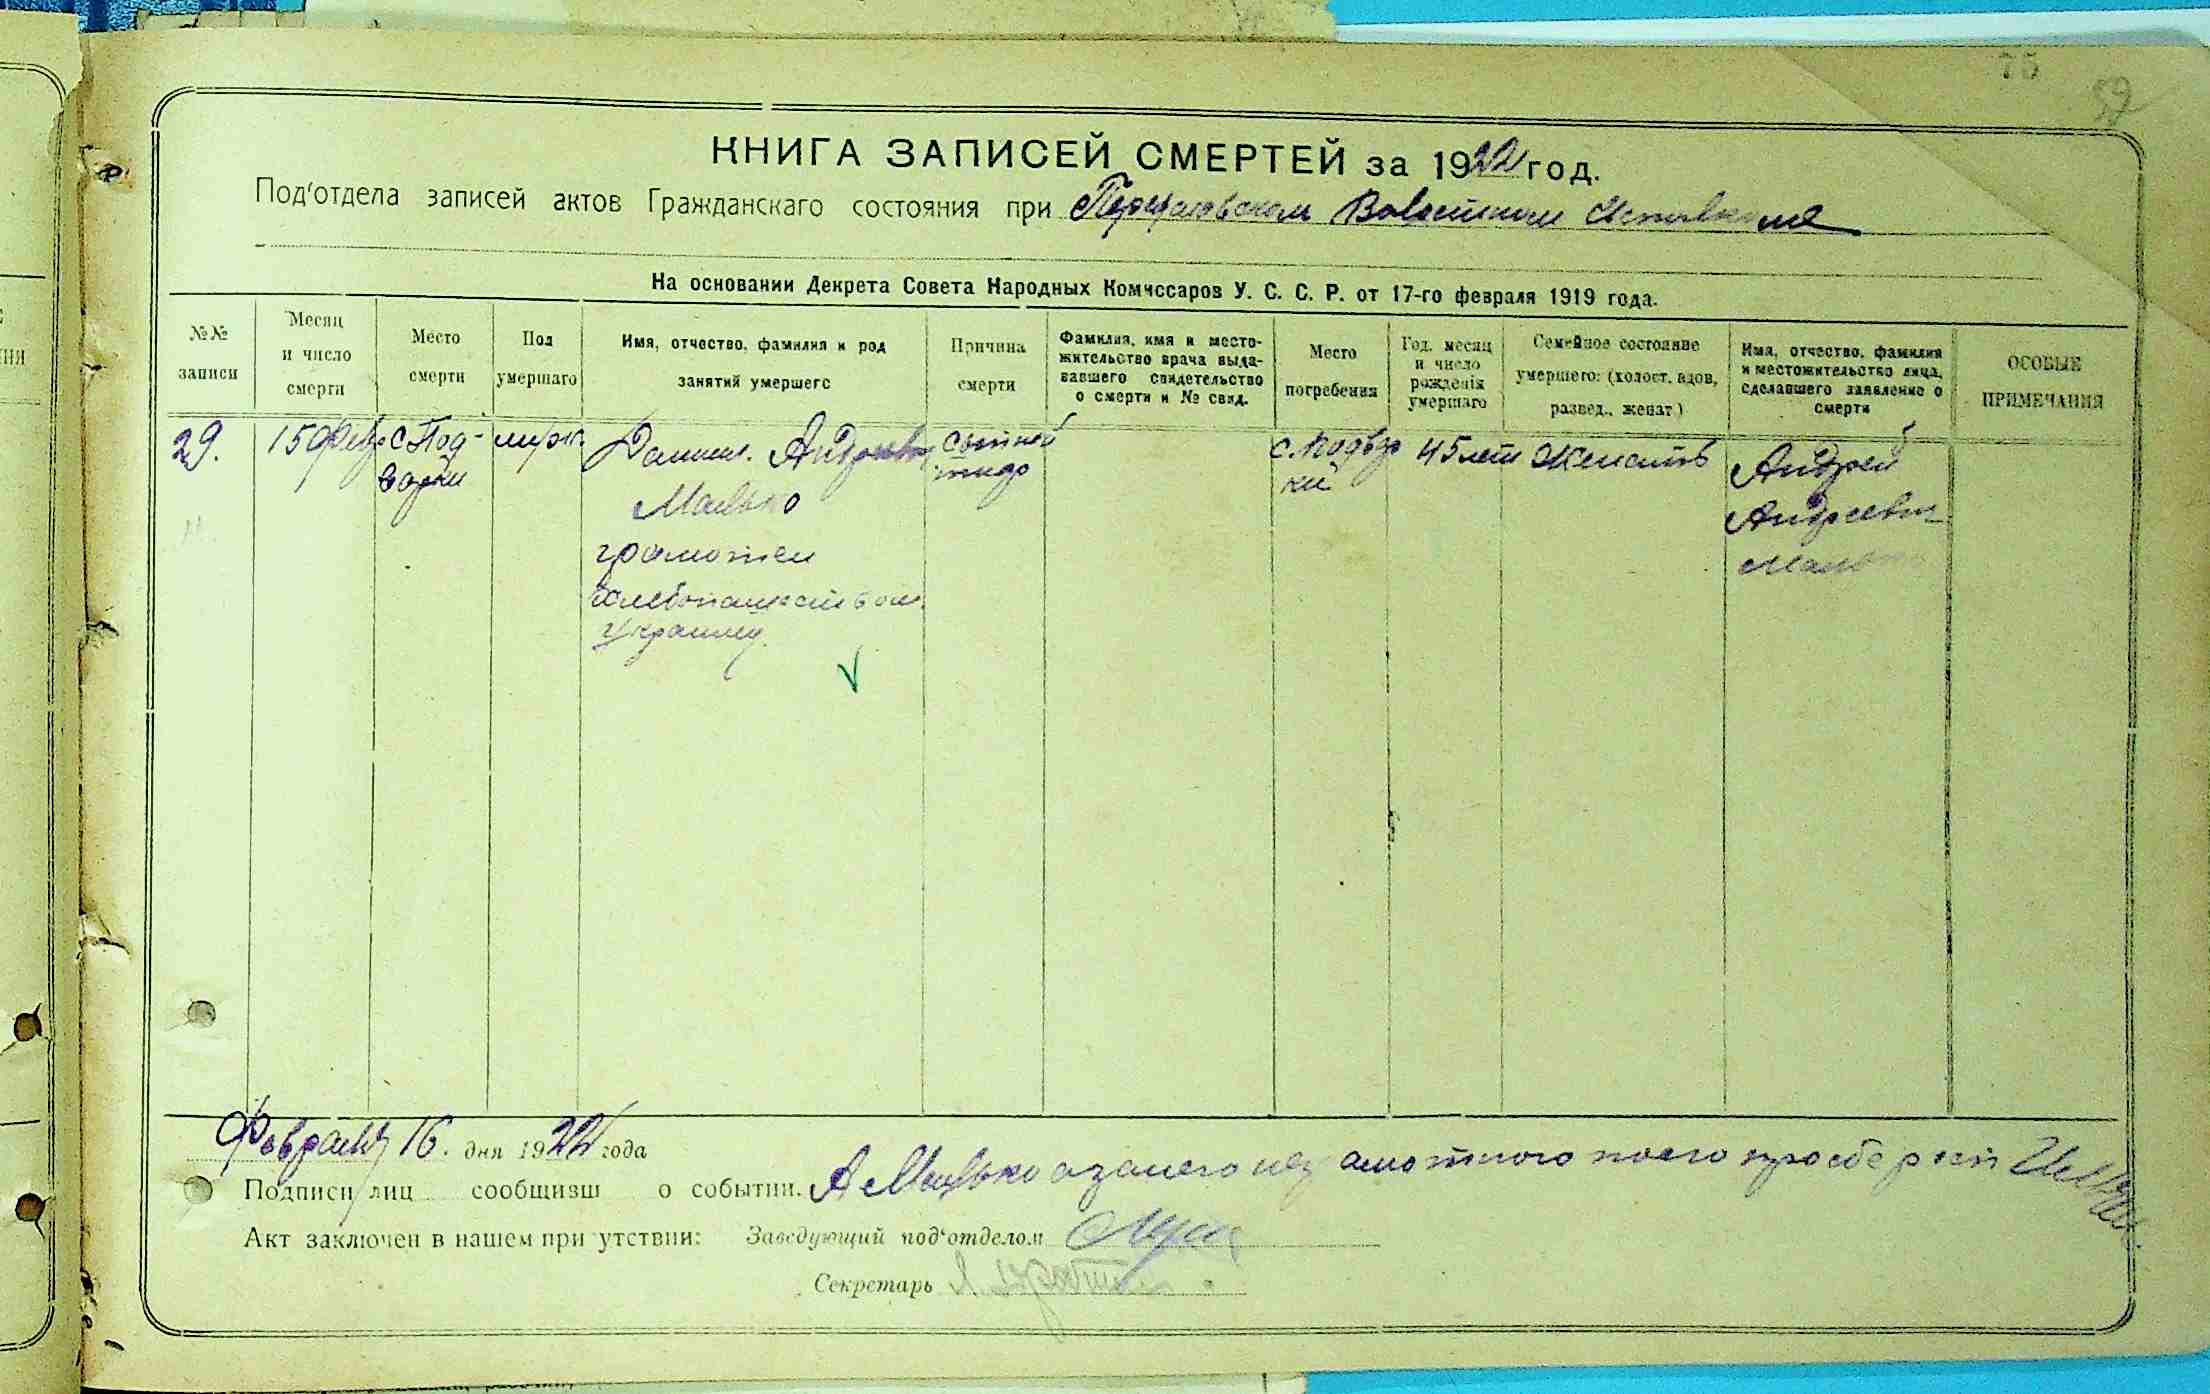 75
КНИГА ЗАПИСЕЙ СМЕРТЕЙ за 1922 год.
Под'отдела записей актов Гражданскаго состояния при Волостном
На основании Декрета Совета Народных Комиссаров У. С. С. Р. от 17-го февраля 1919 года.
№№ записи
Месяц и число смерти
Место смерти
Пол умершаго
Имя, отчество, фамилия и род занятий умершего
Причина смерти
Фамилия, имя и место-жительство врача выда-вавшего свидетельство о смерти и № свид.
Место погребения
Год, месяц и число рожденія умершаго
Семейное состояние умершего: (холост, вдов, развед., женат)
Имя, отчество, фамилия и местожительство лица, сделавшего заявление о смерти
ОСОБЫЕ ПРИМЕЧАНИЯ
29.
15 Фев
с Под-
варки
Андреевич
Малько
хлебопашеством
сыпной
тиф
с. Подвар
ки
45 лет
Женатъ
Андрей
Андреевич
Малько
Февраля 16. дня 1922 года
Подписи лиц сообщивш о событии. А Малько
Акт заключен в нашем при утствии: Заведующий под'отделом
Секретарь